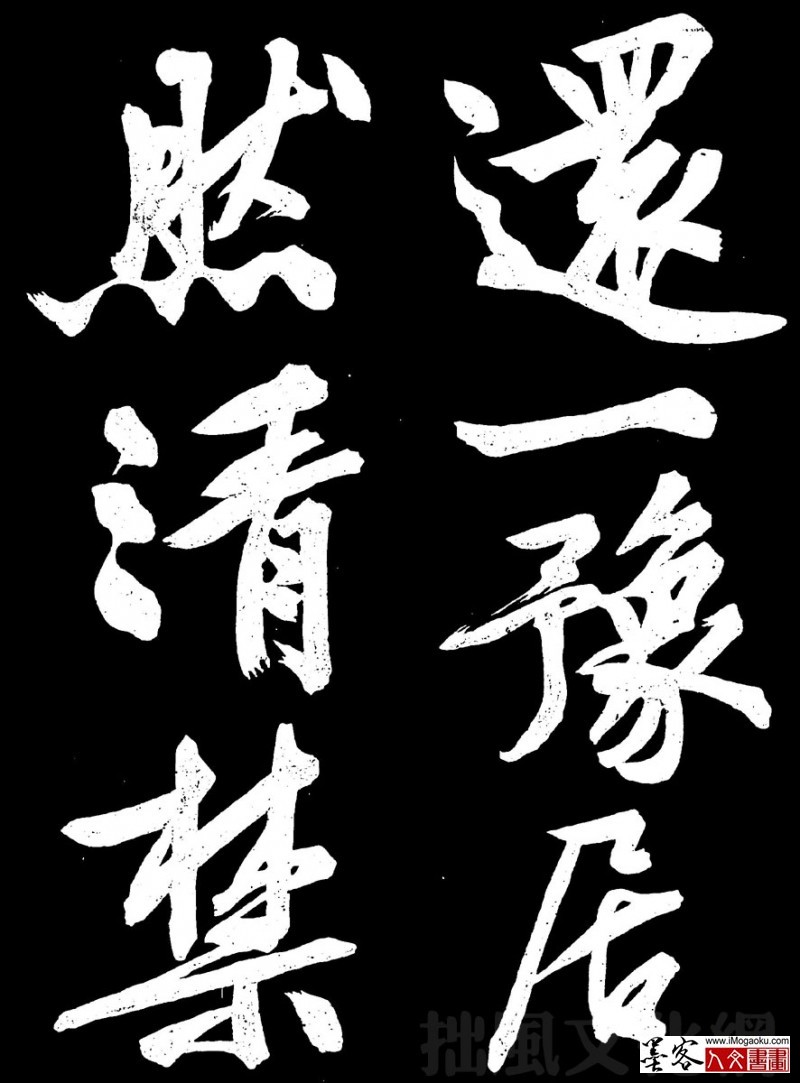 還一豫居
然清禁
拙風文化網
www.iMogaoku.com
墨客
人文書畫